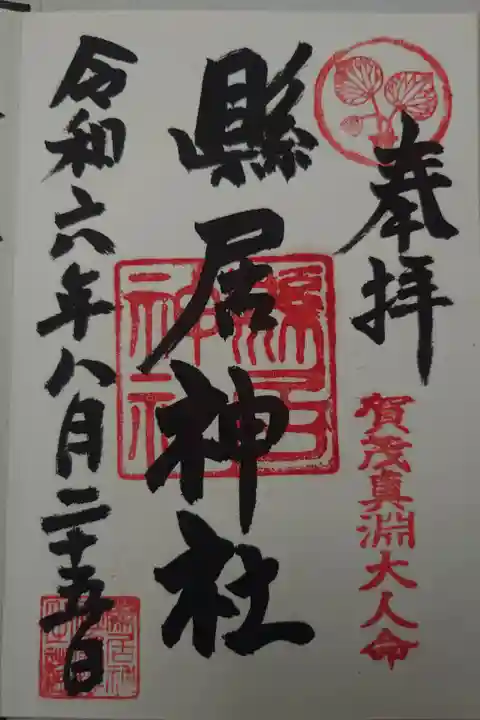 奉拝
賀茂真淵大人命
縣居神社
縣居
神社
令和六年八月二十五日